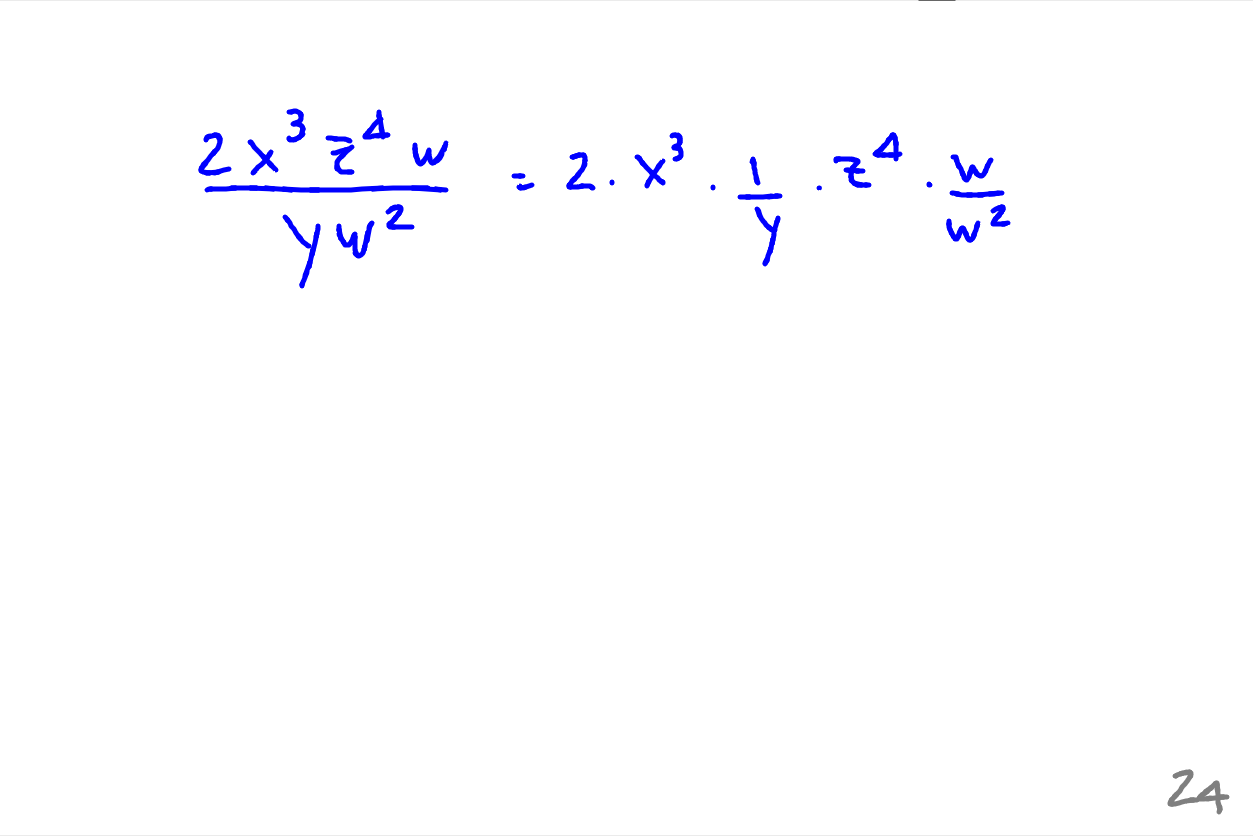 \frac{2x^3 z^4 w}{y w^2} = 2 \cdot x^3 \cdot \frac{1}{y} \cdot z^4 \cdot \frac{w}{w^2}
24